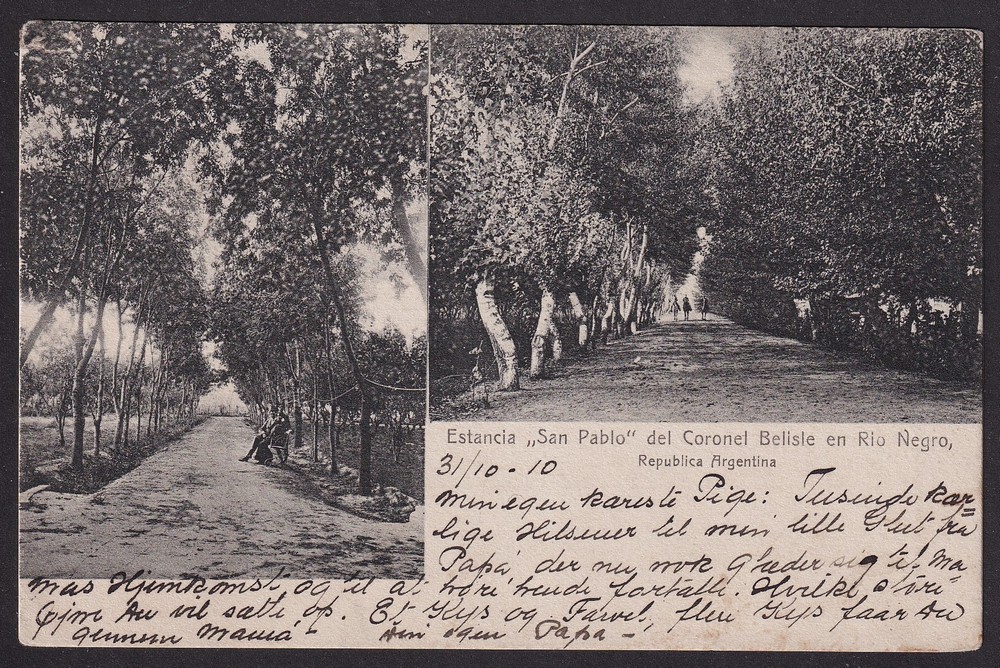 Estancia „San Pablo“ del Coronel Belisle en Rio Negro,
Republica Argentina
31/10 - 10
Min egen kæreste Pige: Tusinde kær=
lige Hilsener til min lille fra
Papá, der nu nok glæder sig til Ma-
mas Hjemkomst og til at höre hende fortælle. Hvilke store
Øjne du vil sætte op. Et Kys og Farvel, flere Kys faar du
gennem Mamá - Din egen Papa -